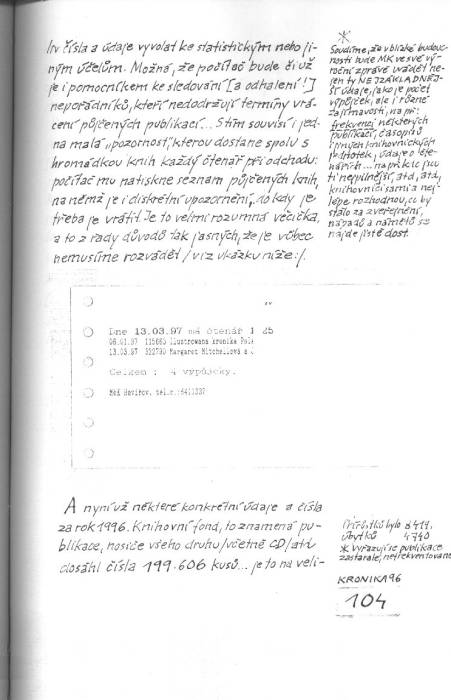 čísla a údaje vyvolat ke statistickým nebo ji-
ným účelům. Možná, že počítač bude či už
je i pomocníkem ke sledování [a odhalení!]
nepořádníků, kteří nedodržují termíny vrá-
cení půjčených publikací... S tím souvisí i jed-
na malá „pozornost", kterou dostane spolu s
hromádkou knih každý čtenář při odchodu:
počítač mu natiskne seznam půjčených knih,
na němž je i diskrétní upozornění, do kdy je
třeba je vrátit. Je to velmi rozumná věcička,
a to z řady důvodů tak jasných, že je vůbec
nemusíme rozvádět /viz ukázku níže:/.
*
Soudíme, že v blízké budouc-
nosti bude MK ve své vý-
roční zprávě uvádět ne-
jen ty NEJZÁKLADNĚJ-
ŠÍ údaje, jako je počet
výpůjček, ale i různé
zajímavosti, např.
frekvenci některých
publikací, časopisů
i jiných knihovnických
jednotek, údaje o čte-
nářích... např. kdo jsou
ti nejpilnější, atd, atd,
knihovníci sami a nej-
lépe rozhodnou, co by
stálo za zveřejnění,
nápadů a námětů se
najde jistě dost.
Dne 13.03.97 má čtenář 1 25
06.01.97 115663 Ilustrovaná kronika
13.03.97 322790 Margaret Mitchellová a
Celkem : 4 výpůjcky.
MěK Havířov, tel.č.:6411337
A nyní už některé konkrétní údaje a čísla
za rok 1996. Knihovní fond, to znamená pu-
blikace, nosiče všeho druhu /včetně CD/atd
dosáhl čísla 199.606 kusů... je to na veli-
Přírůstků bylo 8411,
úbytků 4740
* Vyřazují se publikace
zastaralé, nefrekventované
KRONIKA 96
104